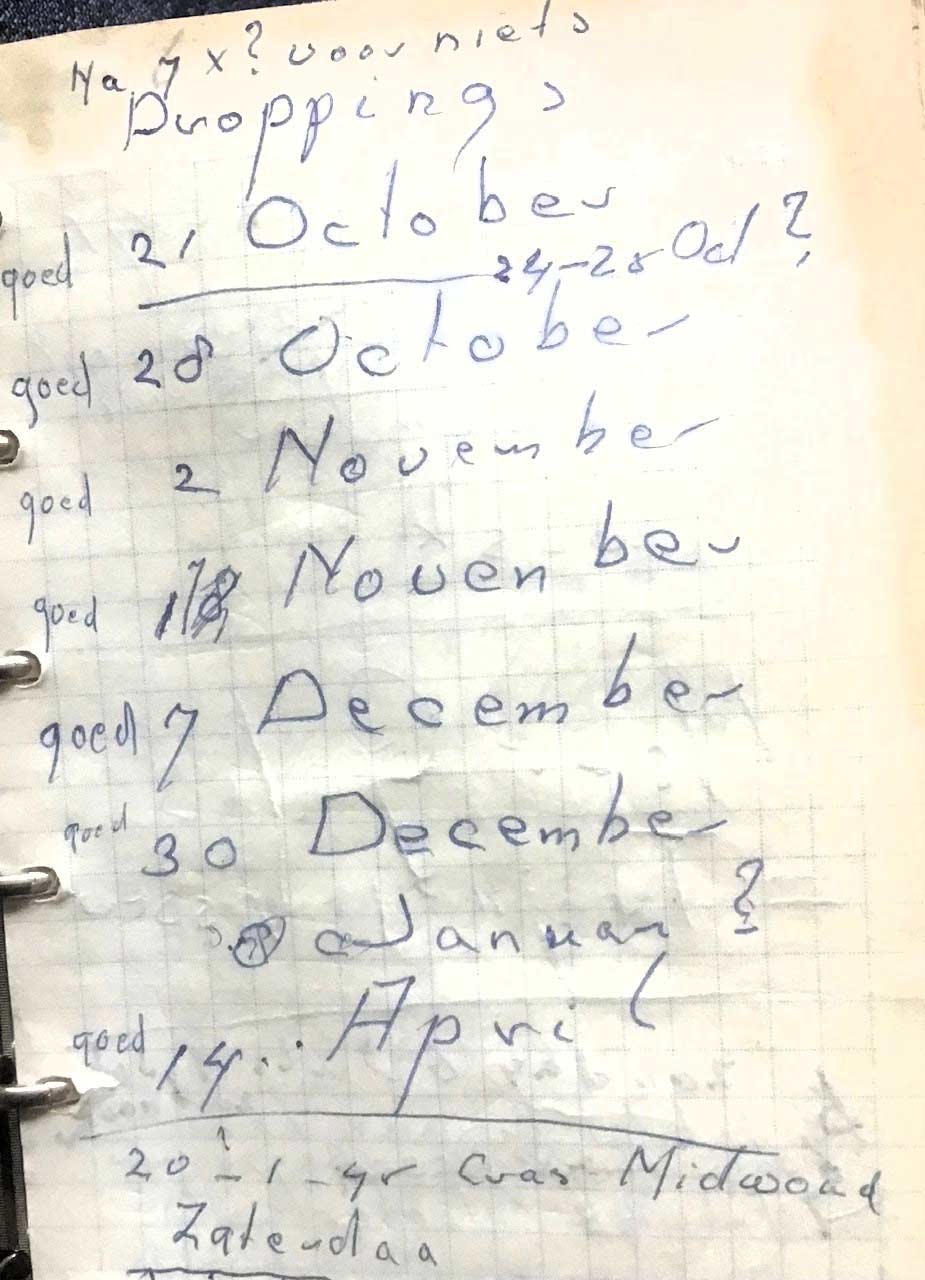 Na 7 x? voor niets
Droppings
goed 21 October
24-25 Oct ?
goed 28 October
goed 2 November
goed Novenber
goed 7 December
goed 30 December
Januari ?
goed 14 April
20-1-45 Cras Midwoud
Zaterdaa